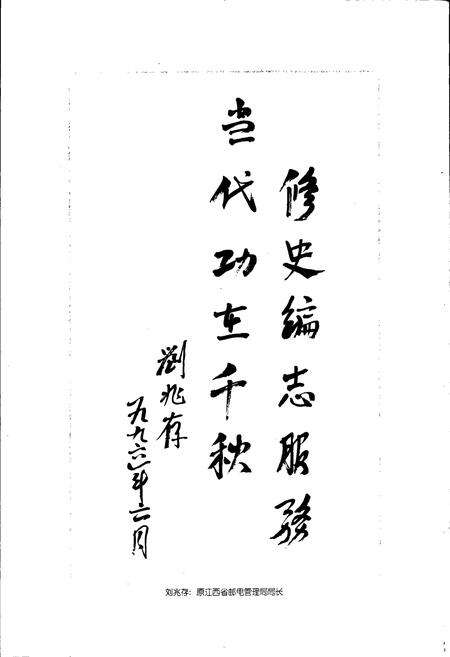 修史编志服務
当代功在千秋
劉兆存
一九九六年六月
刘兆存：原江西省邮电管理局局长